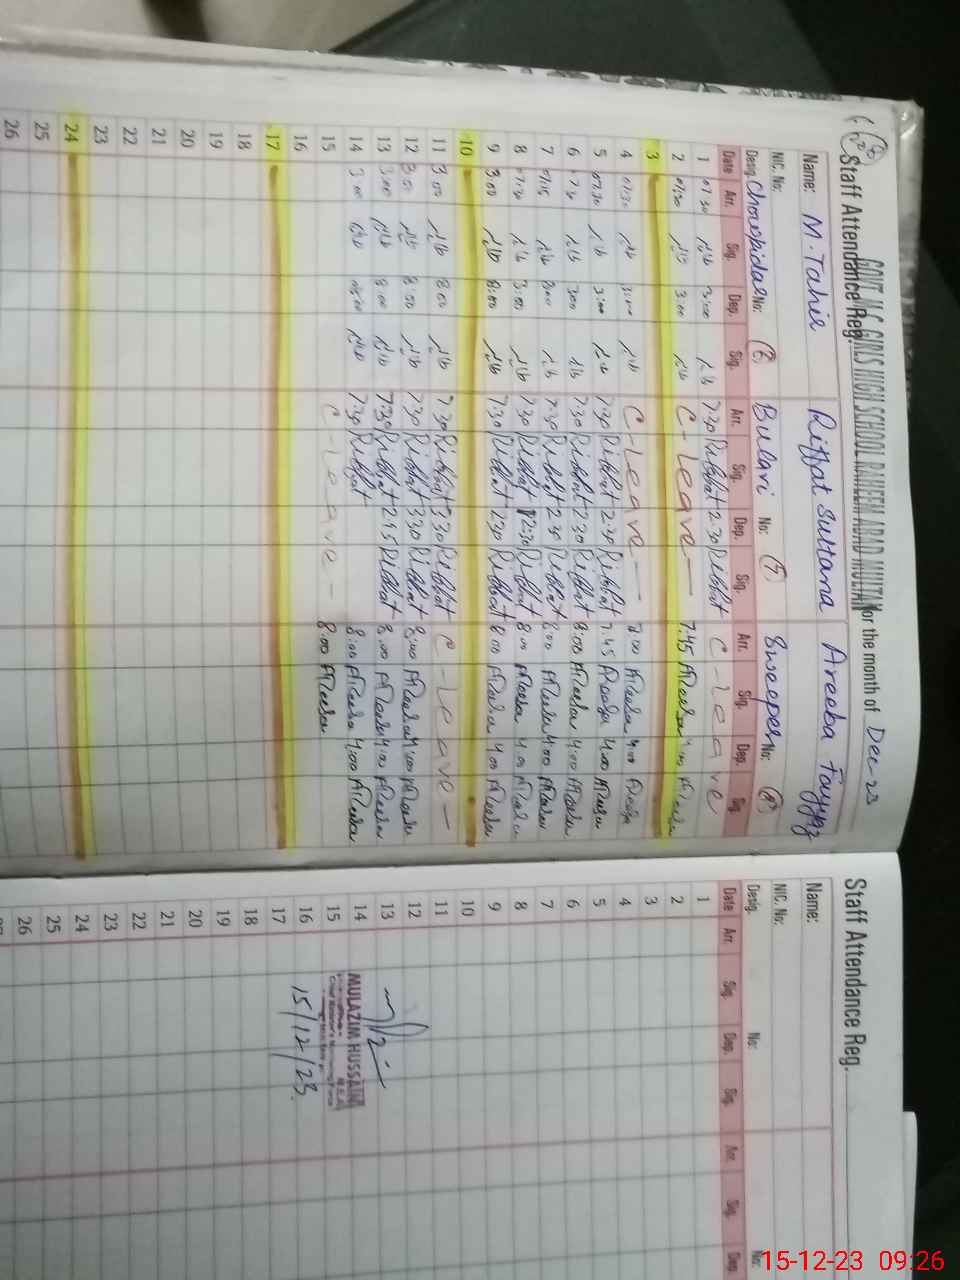 GOVT M.C GIRLS HIGH SCHOOL RAHEEM ABAD MULTAN
Staff Attendance Reg. For the month of Dec-23
Name: M. Tahir Riffat Sultana Areeba Fayyaz
NIC. No:
Desig. Chowpidar No: (6) Bulavi No: (7) Sweeper No: (8)
Date Arr. Sig. Dep. Sig. Arr. Sig. Dep. Sig. Arr. Sig. Dep. Sig.
1 07:30 3:00 7:30 Riffat 2:30 Riffat C-Leave
2 07:30 3:00 C-Leave- 7:45 Areeba 4:00 Areeba
3
4 07:30 3:00 C-Leave- 7:00 Areeba 4:00 Areeba
5 07:30 3:00 7:30 Riffat 2:30 Riffat 7:45 Areeba 4:00 Areeba
6 3:00 7:30 Riffat 2:30 Riffat 8:00 Areeba 4:00 Areeba
7 3:00 7:30 Riffat 2:30 Riffat 8:00 Areeba 4:00 Areeba
8 3:00 7:30 Riffat 12:30 Riffat 8:00 Areeba 4:00 Areeba
9 3:00 8:00 7:30 Riffat 2:30 Riffat 8:00 Areeba 4:00 Areeba
10
11 3:00 8:00 7:30 Riffat 3:30 Riffat C-Leave-
12 3:00 8:00 7:30 Riffat 3:30 Riffat 8:00 Areeba 4:00 Areeba
13 3:00 8:00 7:30 Riffat 2:45 Riffat 8:00 Areeba 4:00 Areeba
14 3:00 7:30 Riffat 8:00 Areeba 4:00 Areeba
15 C-Leave- 8:00 Areeba
16
17
18
19
20
21
22
23
24
25
26
Staff Attendance Reg.
Name:
NIC. No:
Desig. No: No:
Date Arr. Sig. Dep. Sig. Arr. Sig. Dep.
1
2
3
4
5
6
7
8
9
10
11
12
13
14
MULAZIM HUSSAIN
15
16
15/12/23
17
18
19
20
21
22
23
24
25
26
15-12-23 09:26